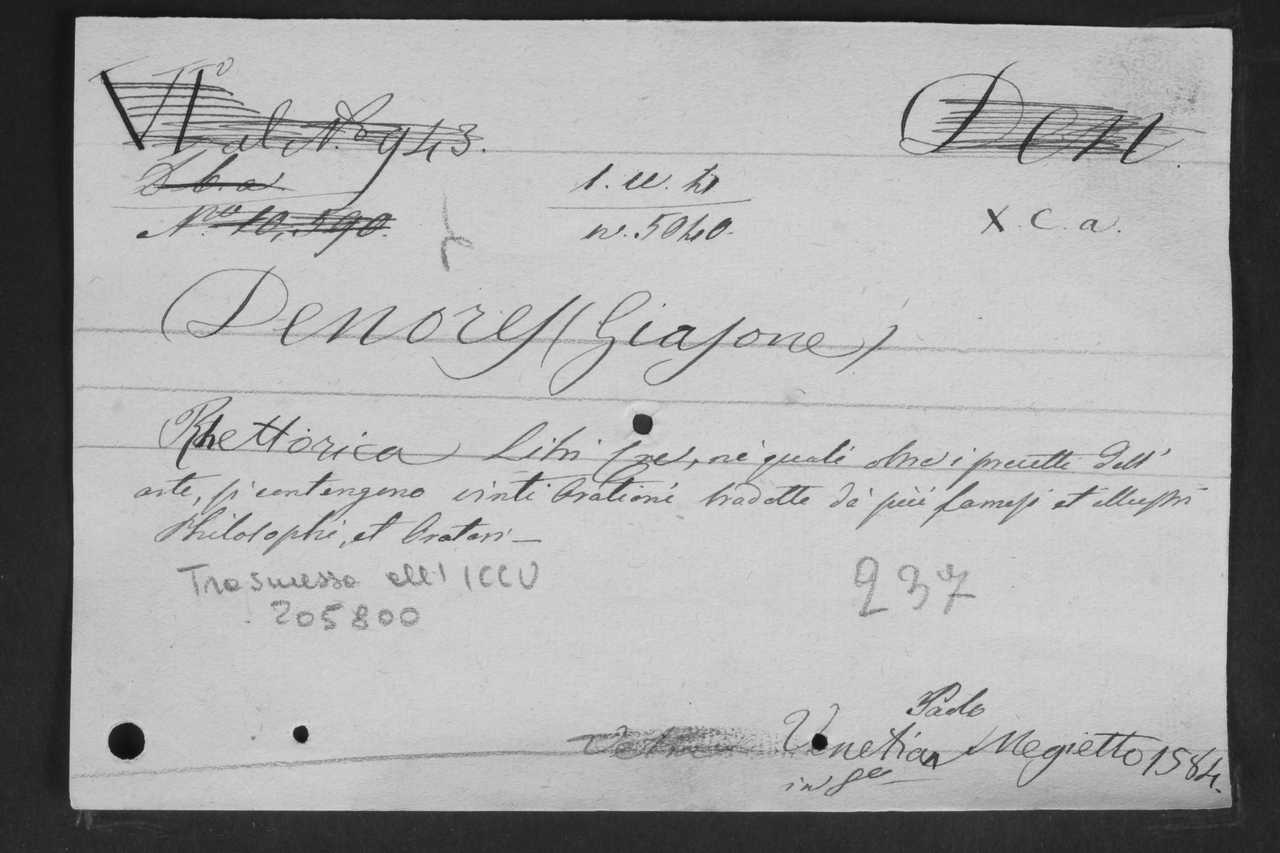 VI al N.º 943.
Den.
Z. b. a
N.º 10,590.
1. u. h
n. 5040.
X. C. a.
Denores (Giasone)
Rhettorica Libri tre, ne quali oltre i precetti dell'
arte, si contengono vinti Orationi tradotte da più famosi et illustri
Philosophi, et Oratori –
Trasmesso all' ICCU
205800
237
Paolo
Venetia Megietto 1584.
in 8º